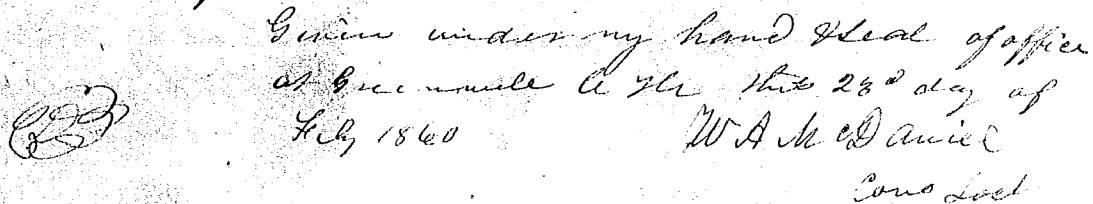 Given under my hand & Seal of office
at Greenville C H this 23d day of
Feby 1860 W A McDaniel